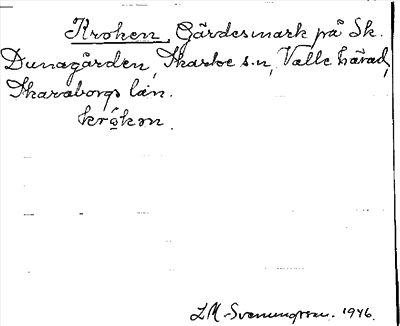 Kroken, Gärdesmark på Sk.
Dunagården, Skarke s:n, Valle härad,
Skaraborgs län.
krókən.
LM Svenungsson. 1946.